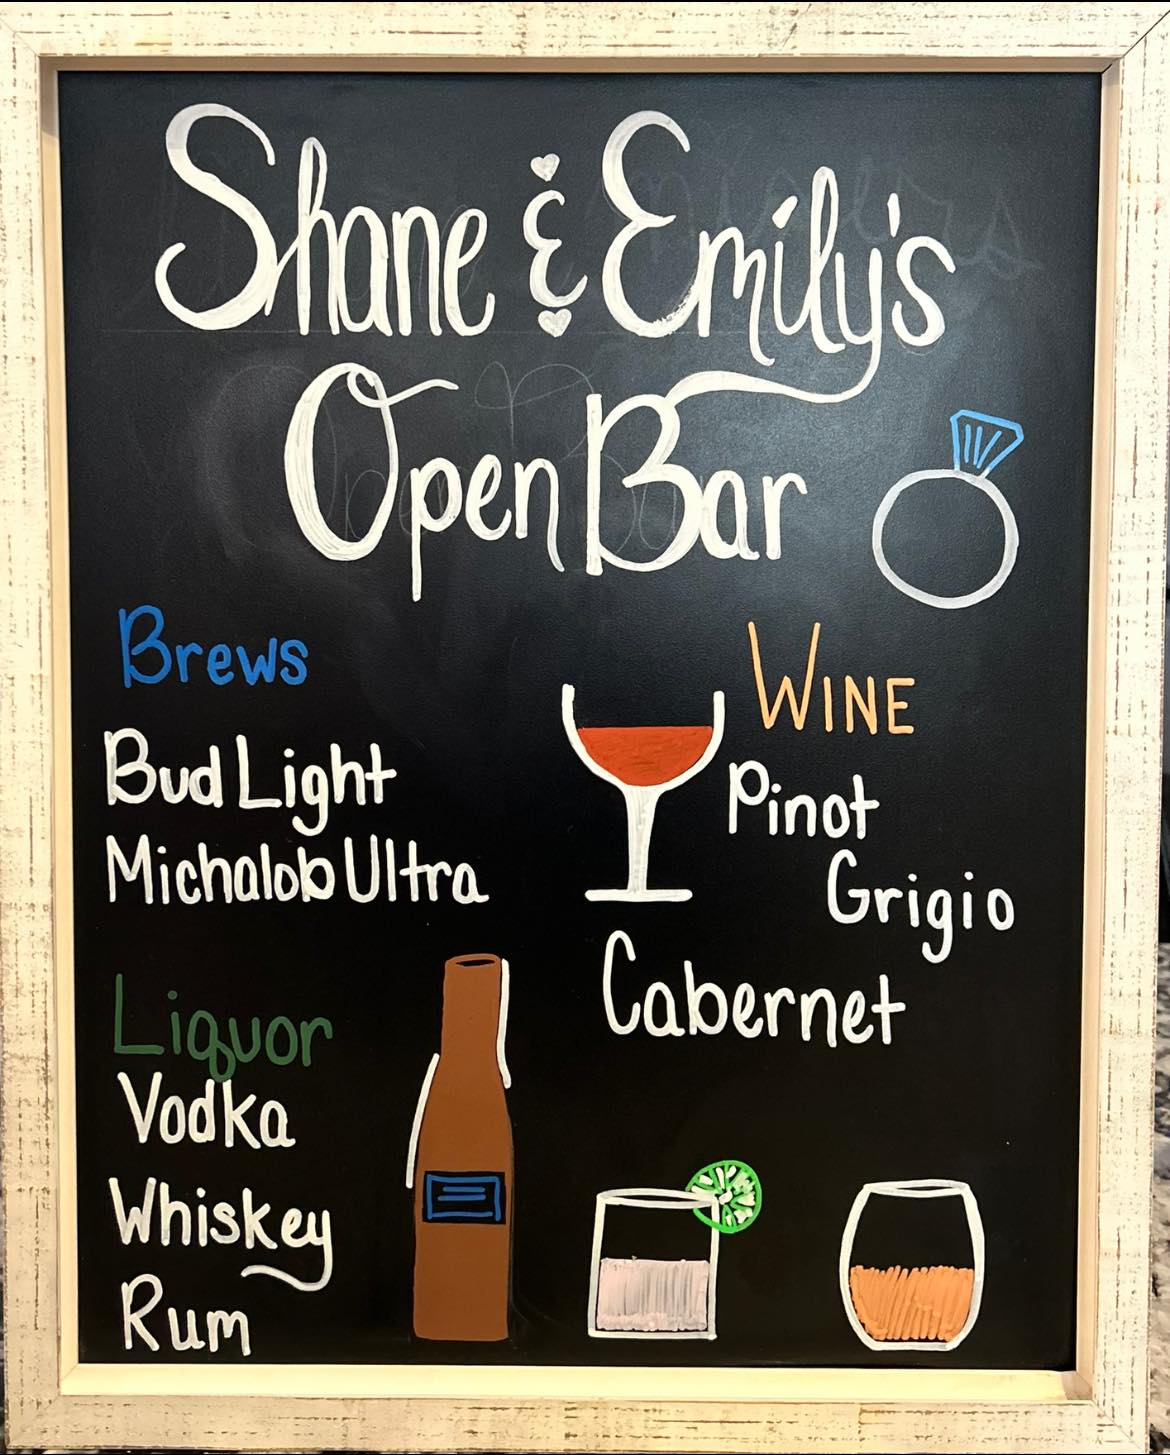 Shane & Emily's
Open Bar
Brews
Bud Light
Michalob Ultra
Wine
Pinot
Grigio
Cabernet
Liquor
Vodka
Whiskey
Rum